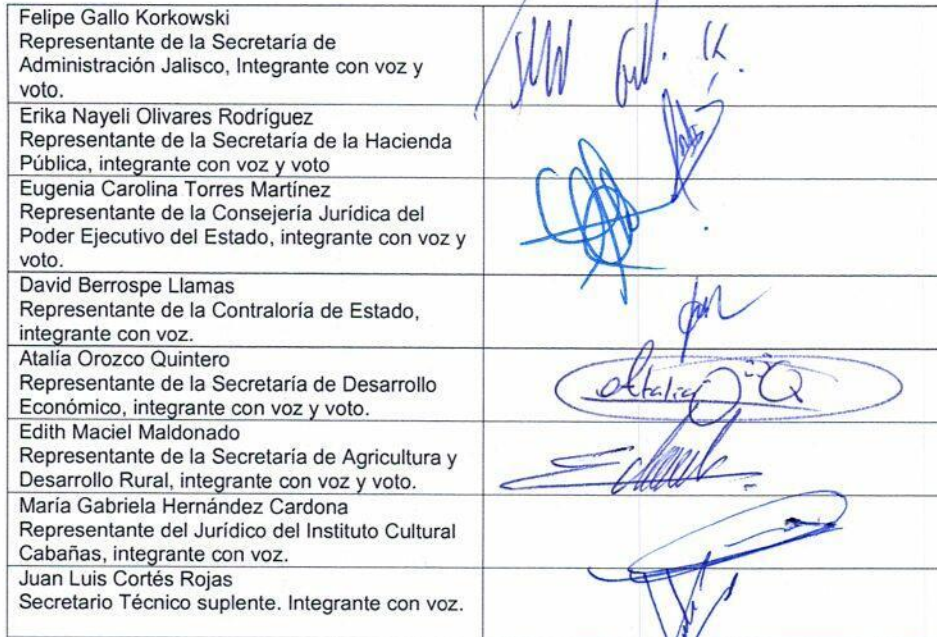 Felipe Gallo Korkowski
Representante de la Secretaría de
Administración Jalisco, Integrante con voz y
voto.
Erika Nayeli Olivares Rodríguez
Representante de la Secretaría de la Hacienda
Pública, integrante con voz y voto
Eugenia Carolina Torres Martínez
Representante de la Consejería Jurídica del
Poder Ejecutivo del Estado, integrante con voz y
voto.
David Berrospe Llamas
Representante de la Contraloría de Estado,
integrante con voz.
Atalía Orozco Quintero
Representante de la Secretaría de Desarrollo
Económico, integrante con voz y voto.
Atalia O Q
Edith Maciel Maldonado
Representante de la Secretaría de Agricultura y
Desarrollo Rural, integrante con voz y voto.
María Gabriela Hernández Cardona
Representante del Jurídico del Instituto Cultural
Cabañas, integrante con voz.
Juan Luis Cortés Rojas
Secretario Técnico suplente. Integrante con voz.